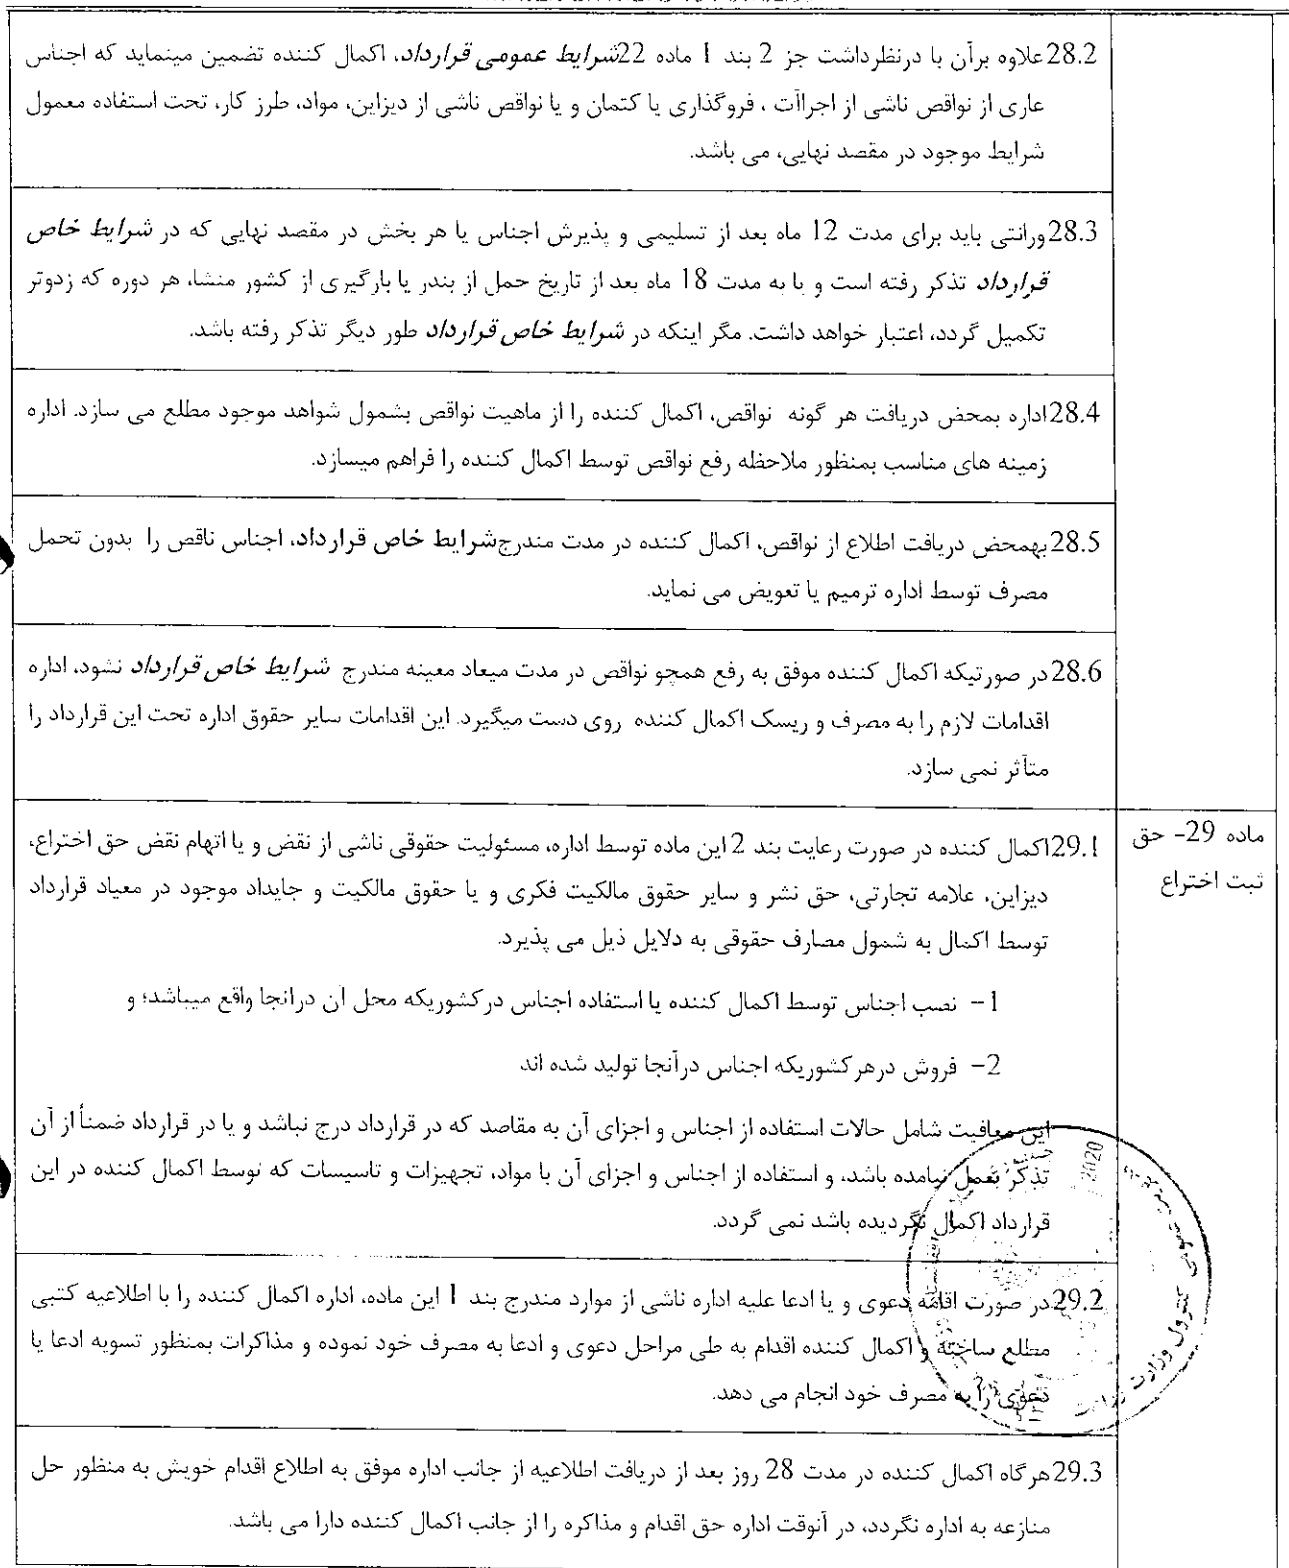 28.2 علاوه برآن با درنظرداشت جز 2 بند 1 ماده 22شرایط عمومی قرارداد، اکمال کننده تضمین مینماید که اجناس
عاری از نواقص ناشی از اجراآت ، فروگذاری یا کتمان و یا نواقص ناشی از دیزاین، مواد، طرز کار، تحت استفاده معمول
شرایط موجود در مقصد نهایی، می باشد.
28.3 ورانتی باید برای مدت 12 ماه بعد از تسلیمی و پذیرش اجناس یا هر بخش در مقصد نهایی که در شرایط خاص
قرارداد تذکر رفته است و یا به مدت 18 ماه بعد از تاریخ حمل از بندر یا بارگیری از کشور منشا، هر دوره که زدوتر
تکمیل گردد، اعتبار خواهد داشت. مگر اینکه در شرایط خاص قرارداد طور دیگر تذکر رفته باشد.
28.4 اداره بمحض دریافت هر گونه نواقص، اکمال کننده را از ماهیت نواقص بشمول شواهد موجود مطلع می سازد. اداره
زمینه های مناسب بمنظور ملاحظه رفع نواقص توسط اکمال کننده را فراهم میسازد.
28.5 بهمحض دریافت اطلاع از نواقص، اکمال کننده در مدت مندرجشرایط خاص قرارداد، اجناس ناقص را بدون تحمل
مصرف توسط اداره ترمیم یا تعویض می نماید.
28.6 در صورتیکه اکمال کننده موفق به رفع همچو نواقص در مدت میعاد معینه مندرج شرایط خاص قرارداد نشود، اداره
اقدامات لازم را به مصرف و ریسک اکمال کننده روی دست میگیرد. این اقدامات سایر حقوق اداره تحت این قرارداد را
متأثر نمی سازد.
ماده 29- حق
ثبت اختراع
29.1 اکمال کننده در صورت رعایت بند 2 این ماده توسط اداره، مسئولیت حقوقی ناشی از نقض و یا اتهام نقض حق اختراع،
دیزاین، علامه تجارتی، حق نشر و سایر حقوق مالکیت فکری و یا حقوق مالکیت و جایداد موجود در معیاد قرارداد
توسط اکمال به شمول مصارف حقوقی به دلایل ذیل می پذیرد.
1- نصب اجناس توسط اکمال کننده یا استفاده اجناس درکشوریکه محل آن درانجا واقع میباشد؛ و
2- فروش درهرکشوریکه اجناس درآنجا تولید شده اند
این معافیت شامل حالات استفاده از اجناس و اجزای آن به مقاصد که در قرارداد درج نباشد و یا در قرارداد ضمناً از آن
تذکر بعمل نیامده باشد، و استفاده از اجناس و اجزای آن با مواد، تجهیزات و تاسیسات که توسط اکمال کننده در این
قرارداد اکمال نگردیده باشد نمی گردد.
29.2 در صورت اقامه دعوی و یا ادعا علیه اداره ناشی از موارد مندرج بند 1 این ماده، اداره اکمال کننده را با اطلاعیه کتبی
مطلع ساخته و اکمال کننده اقدام به طی مراحل دعوی و ادعا به مصرف خود نموده و مذاکرات بمنظور تسویه ادعا یا
دعوی را به مصرف خود انجام می دهد.
2020
کنترول وزارت
29.3 هرگاه اکمال کننده در مدت 28 روز بعد از دریافت اطلاعیه از جانب اداره موفق به اطلاع اقدام خویش به منظور حل
منازعه به اداره نگردد، در آنوقت اداره حق اقدام و مذاکره را از جانب اکمال کننده دارا می باشد.